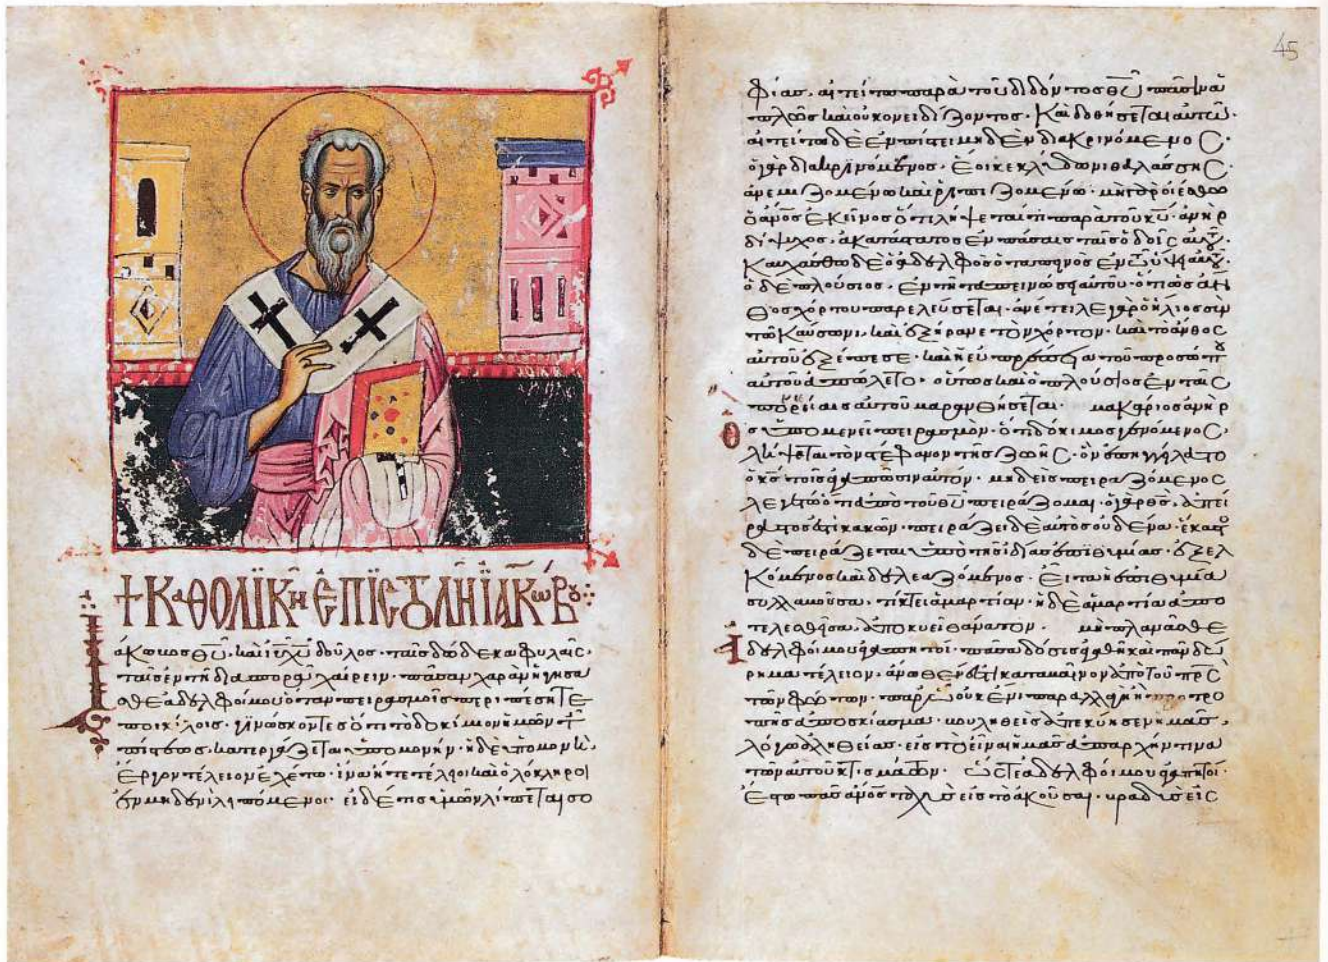 + ΚΑΘΟΛΪΚῊ ἘΠΙΣΤΟΛῊ ἸΑΚΏΒΟΥ
Ἰάκωβος θῦ, καὶ ιῦ χῦ δοῦλος· ταῖς δώδεκα φυλαῖς·
ταῖς ἐν τῆ διασπορᾶ χαίρειν· πᾶσαν χαρὰν ἡγήσα
σθε ἀδελφοί μου ὅταν πειρασμοῖς περιπέσητε
ποικίλοις· γινώσκοντες ὅτι τὸ δοκίμιον ὑμῶν τ
πίστεως, κατεργάζεται ὑπομονήν· ἡ δὲ ὑπομονὴ,
ἔργον τέλειον ἐχέτω· ἵνα ἦτε τέλειοι καὶ ὁλόκληροι
ἐν μηδενὶ λιπόμενοι· εἰ δέ τις ὑμῶν λίπεται σο
45
φίας, αἰτείτω παρὰ τοῦ διδόντος θῦ πᾶσιν ἁ
πλῶς καὶ οὐκ ὀνειδίζοντος· καὶ δοθήσεται αὐτῶ·
αἰτείτω δὲ ἐν πίστει μηδὲν διακρινόμενος·
ὁ γὰρ διακρινόμενος, ἔοικε κλύδωνι θαλάσσης·
ἀνεμιζομένω καὶ ῥιπιζομένω· μὴ γὰρ οἰέσθω
ὁ ἀνος ἐκεῖνος ὅτι λήψεταί τι παρὰ τοῦ κυ· ἀνὴρ
δίψυχος, ἀκατάστατος ἐν πάσαις ταῖς ὁδοῖς αὐτοῦ·
Καυχάσθω δὲ ὁ ἀδελφὸς ὁ ταπεινὸς ἐν τῶ ὕψει αὐτοῦ·
ὁ δὲ πλούσιος, ἐν τῆ ταπεινώσει αὐτοῦ· ὅτι ὡς ἄν
θος χόρτου παρελεύσεται· ἀνέτειλε γὰρ ὁ ἥλιος σὺν
τῶ καύσωνι, καὶ ἐξήρανε τὸν χόρτον· καὶ τὸ ἄνθος
αὐτοῦ ἐξέπεσε· καὶ ἡ εὐπρέπεια τοῦ προσώπου
αὐτοῦ ἀπώλετο· οὕτως καὶ ὁ πλούσιος ἐν ταῖς
πορείαις αὐτοῦ μαρανθήσεται· μακάριος ἀνὴρ
ὃς ὑπομένει πειρασμὸν· ὅτι δόκιμος γενόμενος,
λήψεται τὸν στέφανον τῆς ζωῆς· ὃν ἐπηγγείλατο
ὁ κς τοῖς ἀγαπῶσιν αὐτόν· μηδεὶς πειραζόμενος
λεγέτω ὅτι ἀπὸ τοῦ θυ πειράζομαι· ὁ γὰρ θς, ἀπεί
ραστός ἐστι κακῶν· πειράζει δὲ αὐτὸς οὐδένα· ἕκαστος
δὲ πειράζεται ὑπὸ τῆς ἰδίας ἐπιθυμίας· ἐξελ
κόμενος καὶ δελεαζόμενος· εἶτα ἡ ἐπιθυμία
συλλαβοῦσα, τίκτει ἁμαρτίαν· ἡ δὲ ἁμαρτία ἀπο
τελεσθεῖσα, ἀποκυεῖ θάνατον· μὴ πλανᾶσθε
ἀδελφοί μου ἀγαπητοί· πᾶσα δόσις ἀγαθὴ καὶ πᾶν δώ
ρημα τέλειον, ἄνωθέν ἐστι καταβαῖνον ἀπὸ τοῦ πρς
τῶν φώτων· παρ' ὧ οὐκ ἔνι παραλλαγὴ ἢ τρο
πῆς ἀποσκίασμα· βουληθεὶς ἀπεκύησεν ἡμᾶς,
λόγω ἀληθείας· εἰς τὸ εἶναι ἡμᾶς ἀπαρχήν τινα
τῶν αὐτοῦ κτισμάτων· ὥστε ἀδελφοί μου ἀγαπητοί·
ἔστω πᾶς ἀνος ταχὺς εἰς τὸ ἀκοῦσαι· βραδὺς εἰς